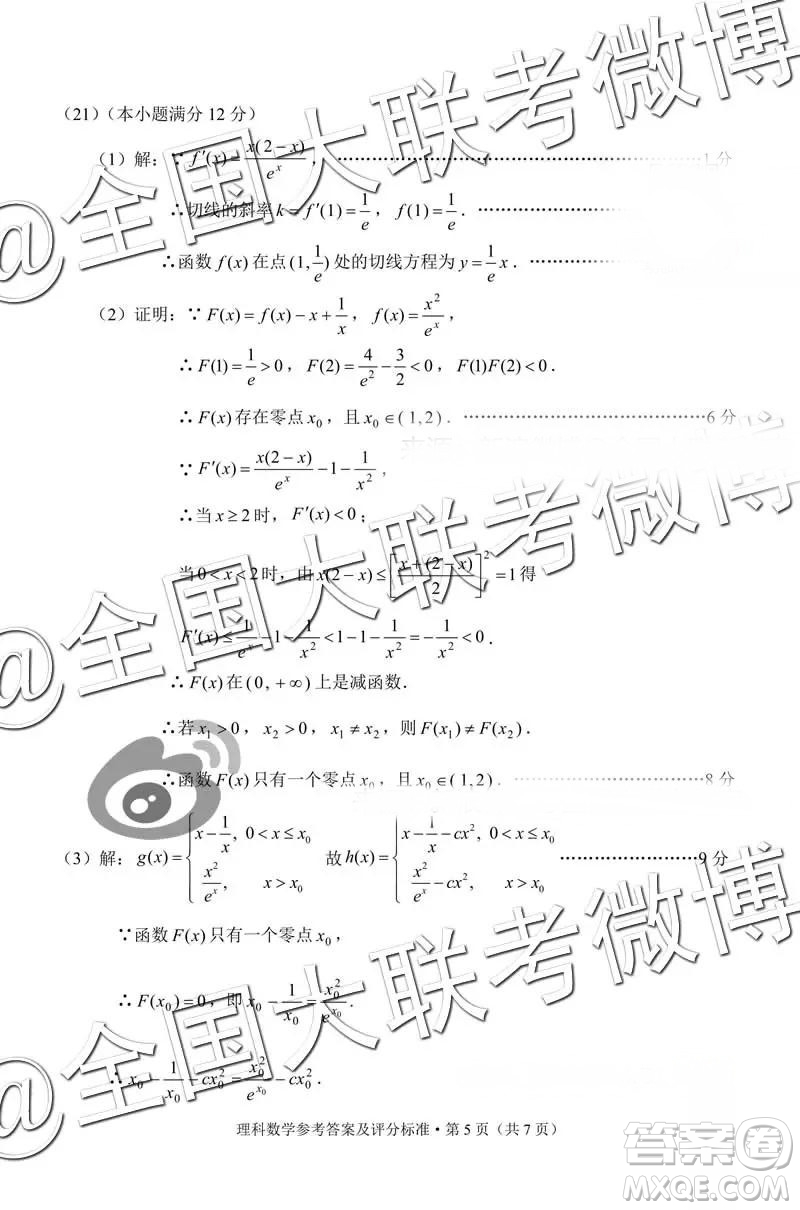 (21)(本小题满分 12 分)
(1)解:∵ f′(x)=x(2−x)/e^x, ………………………… 1 分
∴切线的斜率 k=f′(1)=1/e, f(1)=1/e. …………………
∴函数 f(x) 在点 (1, 1/e) 处的切线方程为 y=1/e x. ……………
(2)证明:∵ F(x)=f(x)−x+1/x, f(x)=x²/e^x,
∴ F(1)=1/e>0, F(2)=4/e²−3/2<0, F(1)F(2)<0.
∴ F(x) 存在零点 x₀,且 x₀∈(1,2). ………………………… 6 分
∵ F′(x)=x(2−x)/e^x−1−1/x²,
∴当 x≥2 时, F′(x)<0;
当 0<x<2 时,由 x(2−x)≤[x+(2−x)/2]²=1 得
F′(x)≤1/e^x−1−1/x²<1−1−1/x²=−1/x²<0.
∴ F(x) 在 (0,+∞) 上是减函数.
∴若 x₁>0, x₂>0, x₁≠x₂,则 F(x₁)≠F(x₂).
∴函数 F(x) 只有一个零点 x₀,且 x₀∈(1,2). ………………… 8 分
(3)解: g(x)={x−1/x, 0<x≤x₀; x²/e^x, x>x₀ 故 h(x)={x−1/x−cx², 0<x≤x₀; x²/e^x−cx², x>x₀ …………………… 9 分
∵函数 F(x) 只有一个零点 x₀,
∴ F(x₀)=0,即 x₀−1/x₀=x₀²/e^x₀.
∴ x₀−1/x₀−cx₀²=x₀²/e^x₀−cx₀².
理科数学参考答案及评分标准·第 5 页(共 7 页)
@全国大联考微博
@全国大联考微博
@全国大联考微博
答案圈
MXQE.COM